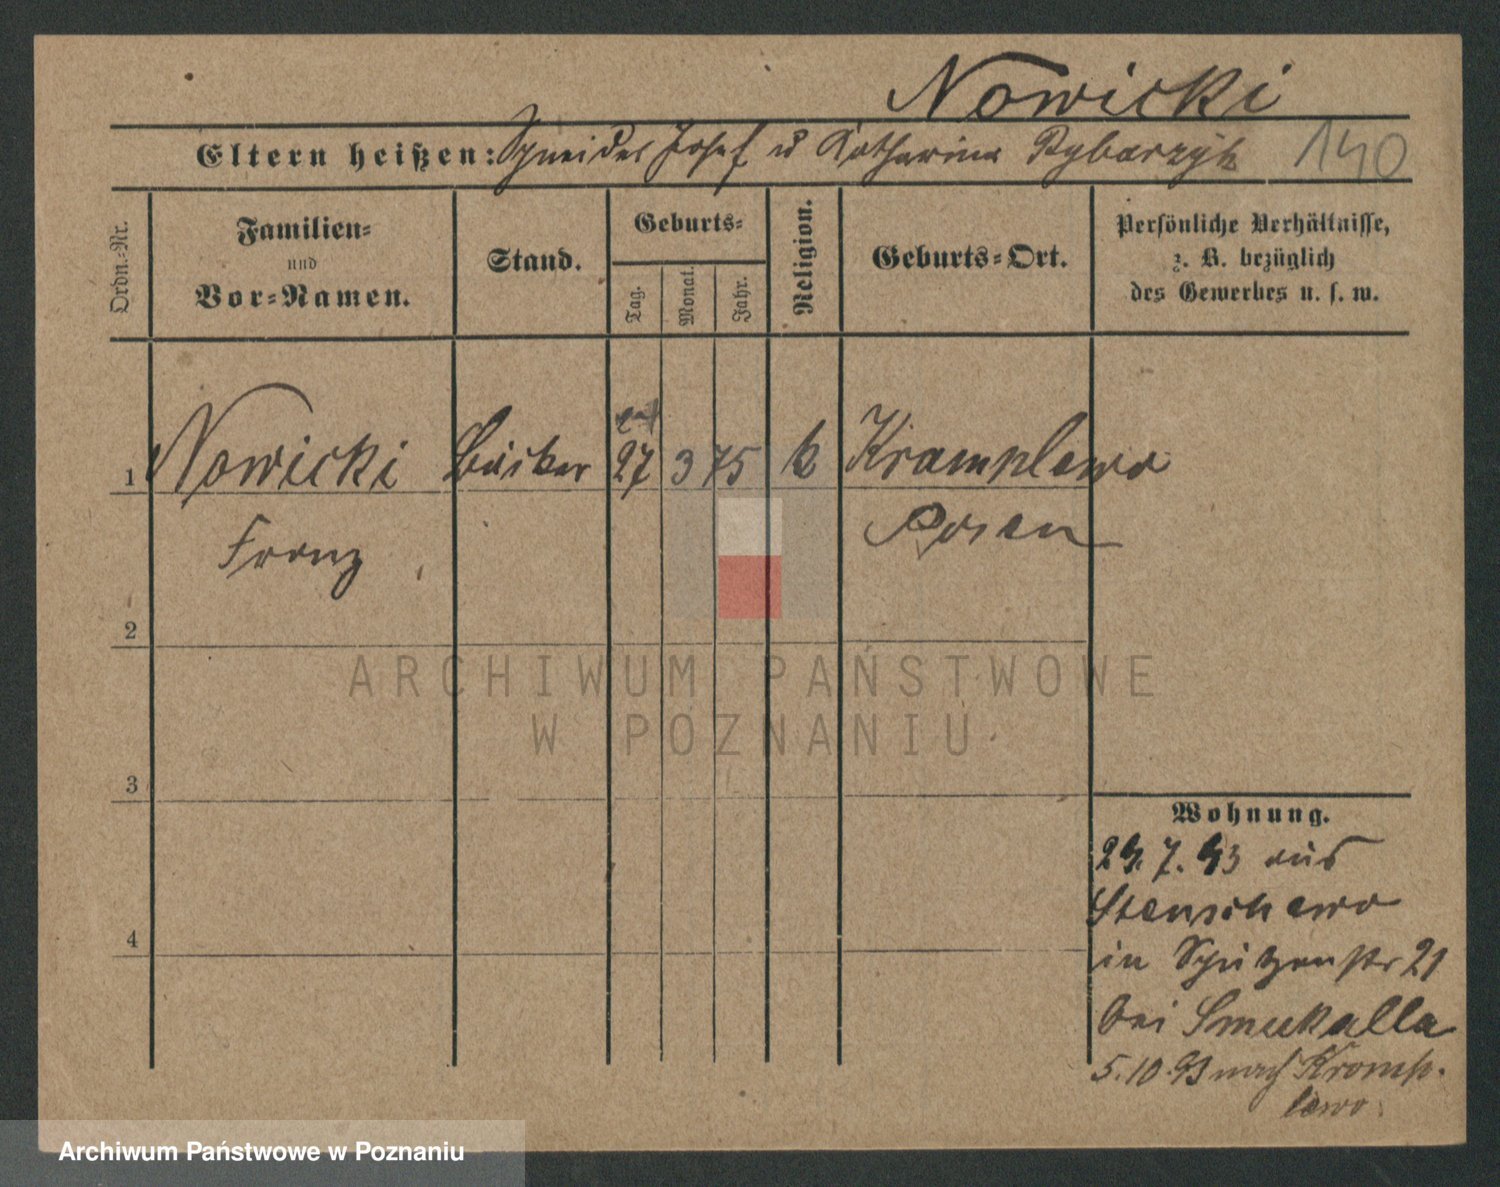 Nowicki
Eltern heißen: Schneider Josef u Katharina Rybarzyk 140
Ordn.-Nr.
Familien-
und
Vor-Namen.
Stand.
Geburts-
Tag.
Monat.
Jahr.
Religion.
Geburts-Ort.
Persönliche Verhältnisse,
z. B. bezüglich
des Gewerbes u. s. w.
1 Nowicki Bäcker 27 3 75 k Kramplewo
Franz Posen
2
3
4
Wohnung.
29.7.93 aus
Stenschewo
in Schützenstr 21
bei Smukalla
5.10.93 nach Kromp-
lewo.
ARCHIWUM PAŃSTWOWE
W POZNANIU
Archiwum Państwowe w Poznaniu